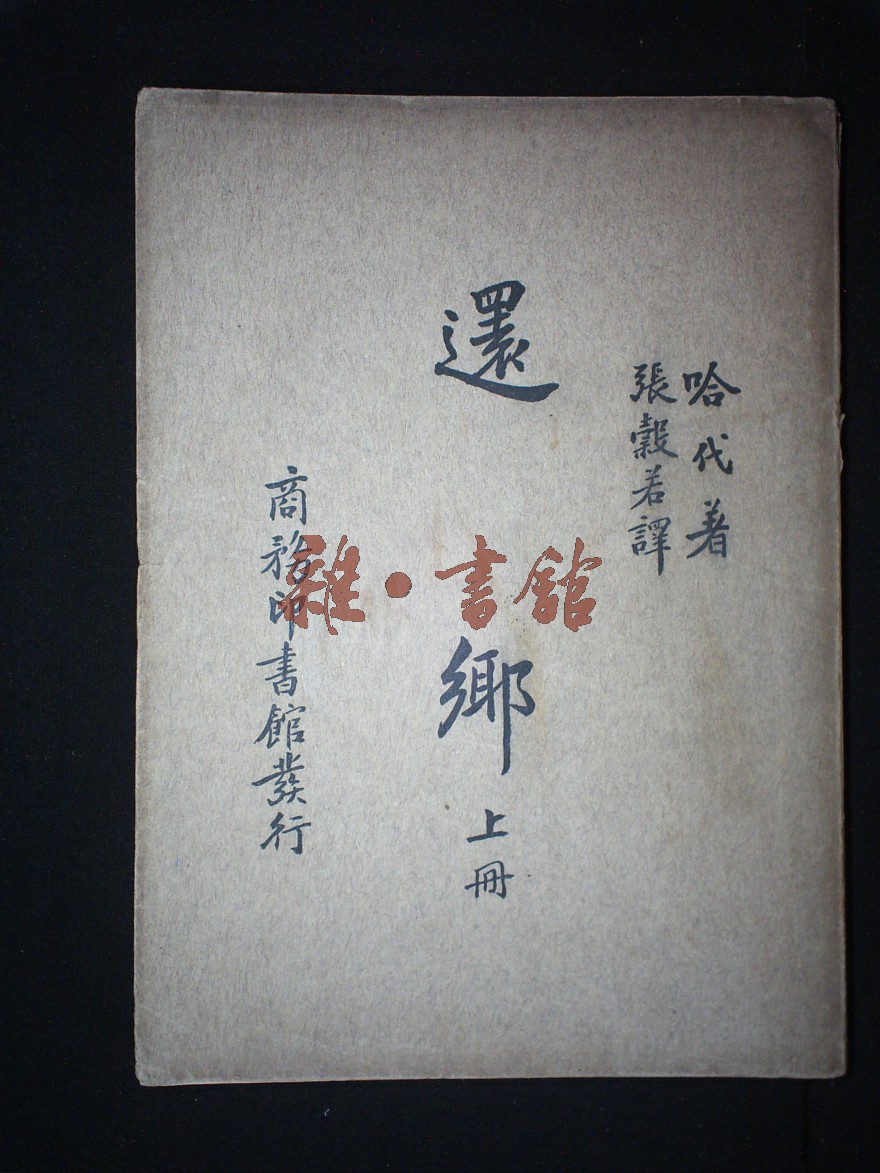 哈代著
張穀若譯
還鄉 上冊
商務印書館發行
雜·書館